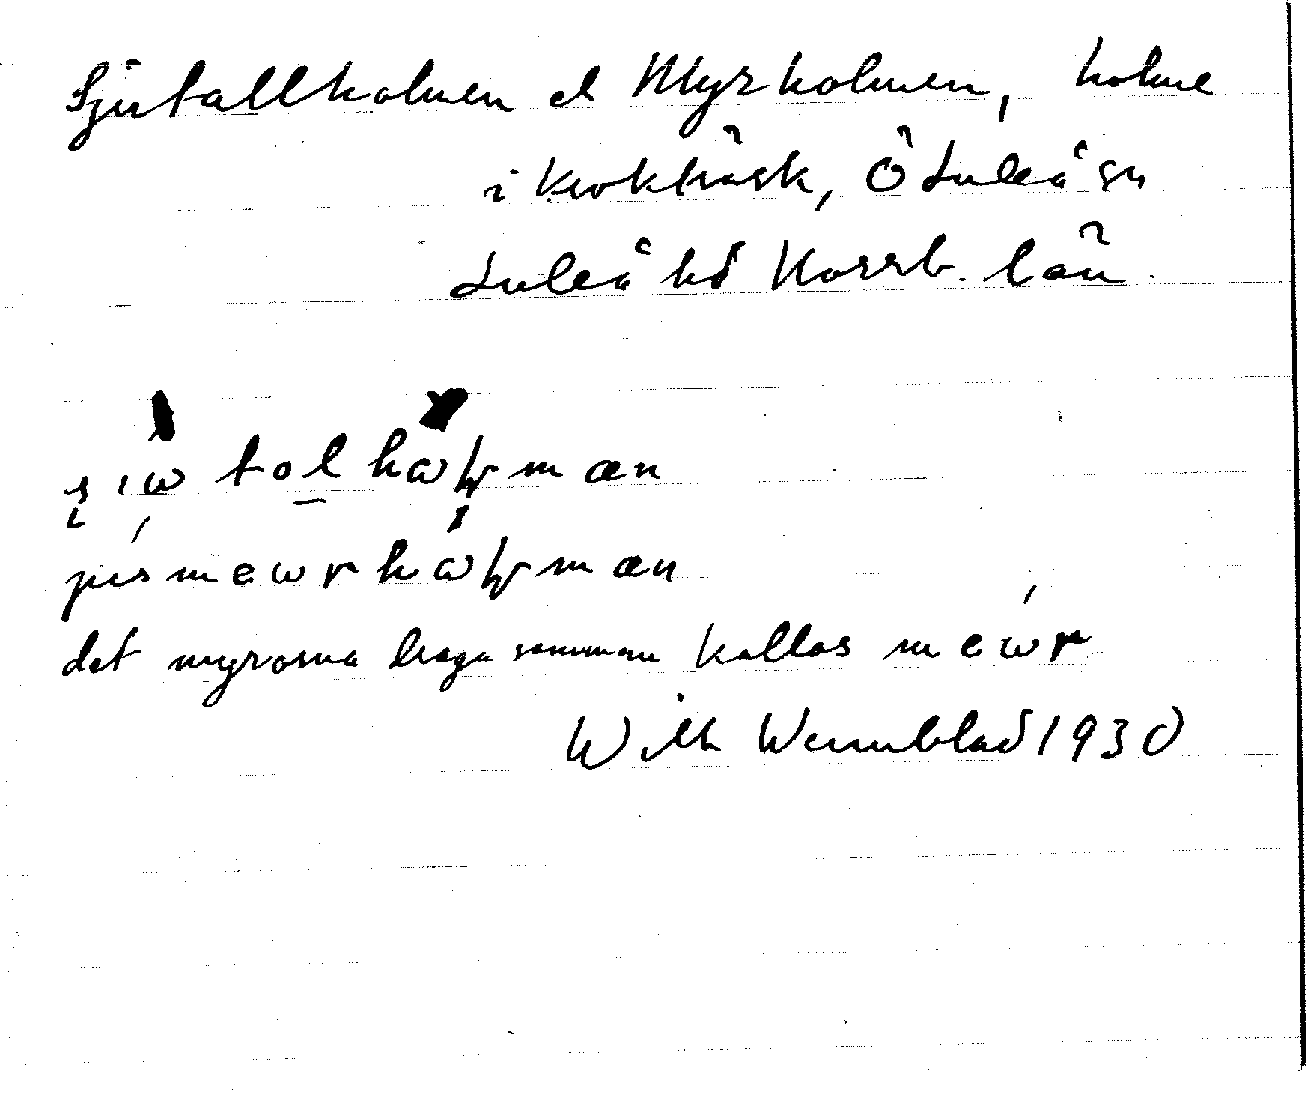 Sjutallholmen el Myrholmen, holme
i Krokträsk, ÖLuleå sn
Luleå hd Norrb. län.
siω tolhωlmæn
pismeωrhωlmæn
det myrorna draga samman kallas meωr
Wilh Wennblad 1930